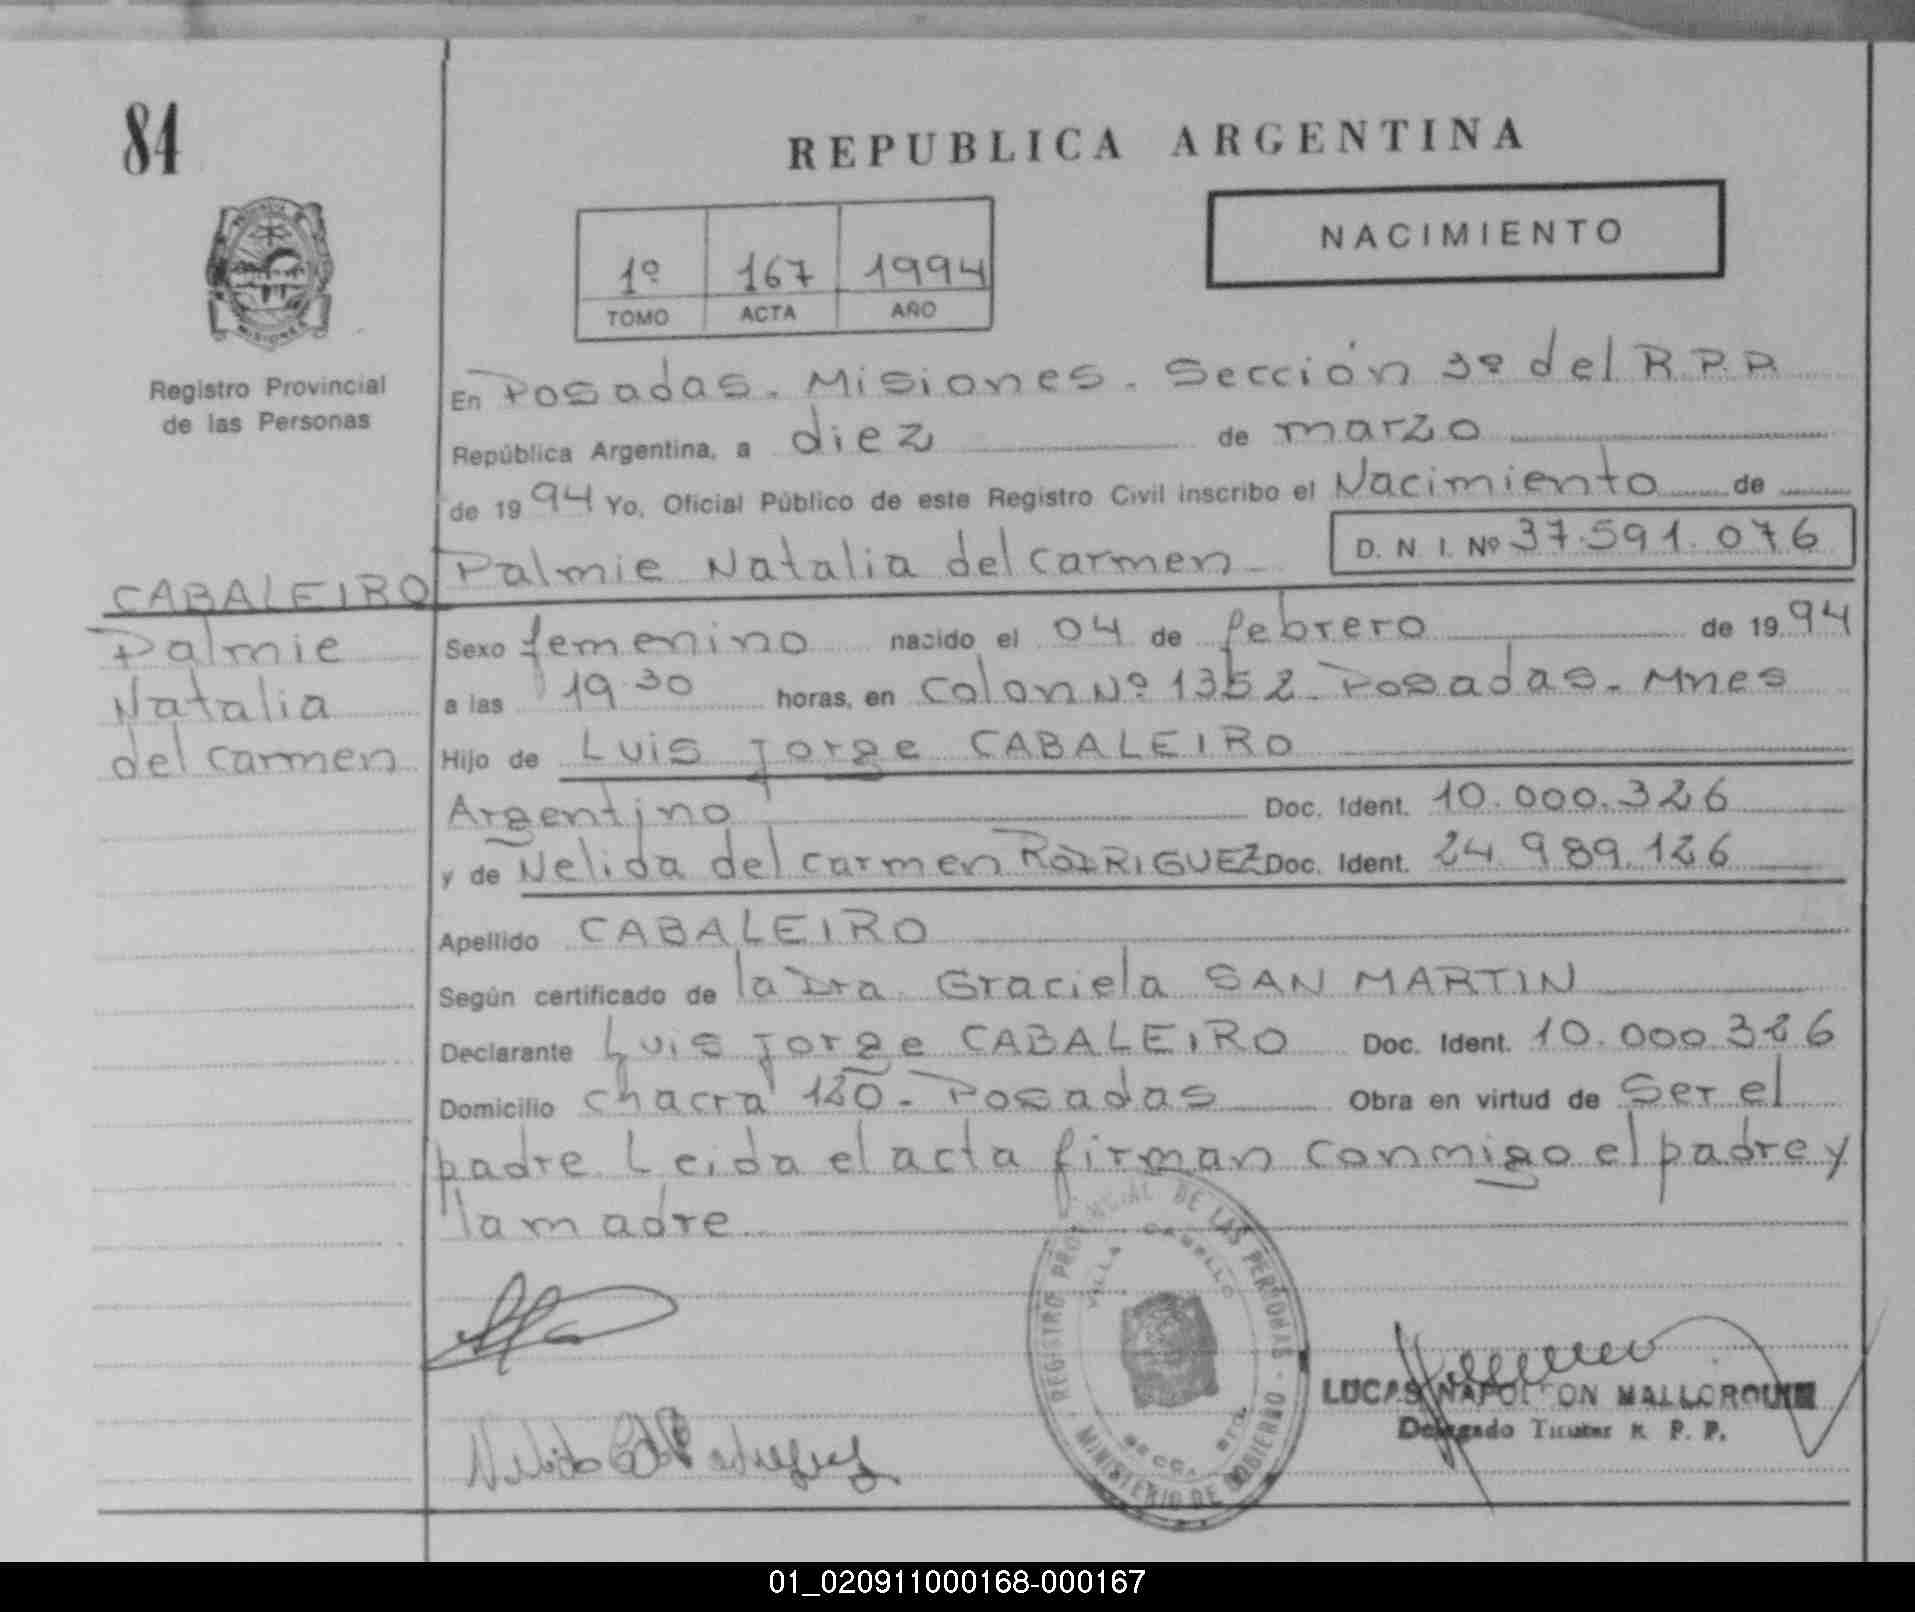 84
REPUBLICA ARGENTINA
NACIMIENTO
1º 167 1994
TOMO ACTA AÑO
MISIONES
Registro Provincial
de las Personas
En Posadas. Misiones. Sección 3º del R.P.P.
República Argentina, a diez de marzo
de 1994 Yo, Oficial Público de este Registro Civil inscribo el Nacimiento de
Palmie Natalia del Carmen D. N. I. Nº 37.591.076
CABALEIRO
Palmie
Natalia
del Carmen
Sexo femenino nacido el 04 de febrero de 1994
a las 19.30 horas, en Colon Nº 1352. Posadas. Mnes
Hijo de Luis Jorge CABALEIRO
Argentino Doc. Ident. 10.000.326
y de Nelida del Carmen RODRIGUEZ Doc. Ident. 24.989.126
Apellido CABALEIRO
Según certificado de la Dra. Graciela SAN MARTIN
Declarante Luis Jorge CABALEIRO Doc. Ident. 10.000.326
Domicilio chacra 120. Posadas Obra en virtud de Ser el
padre. Leida el acta firman conmigo el padre y
la madre
REGISTRO PROVINCIAL DE LAS PERSONAS - MINISTERIO DE GOBIERNO
VILLA CABELLO
SECC. 3ra.
LUCAS NAPOLEON MALLORQUIN
Delegado Titular R. P. P.
01_020911000168-000167